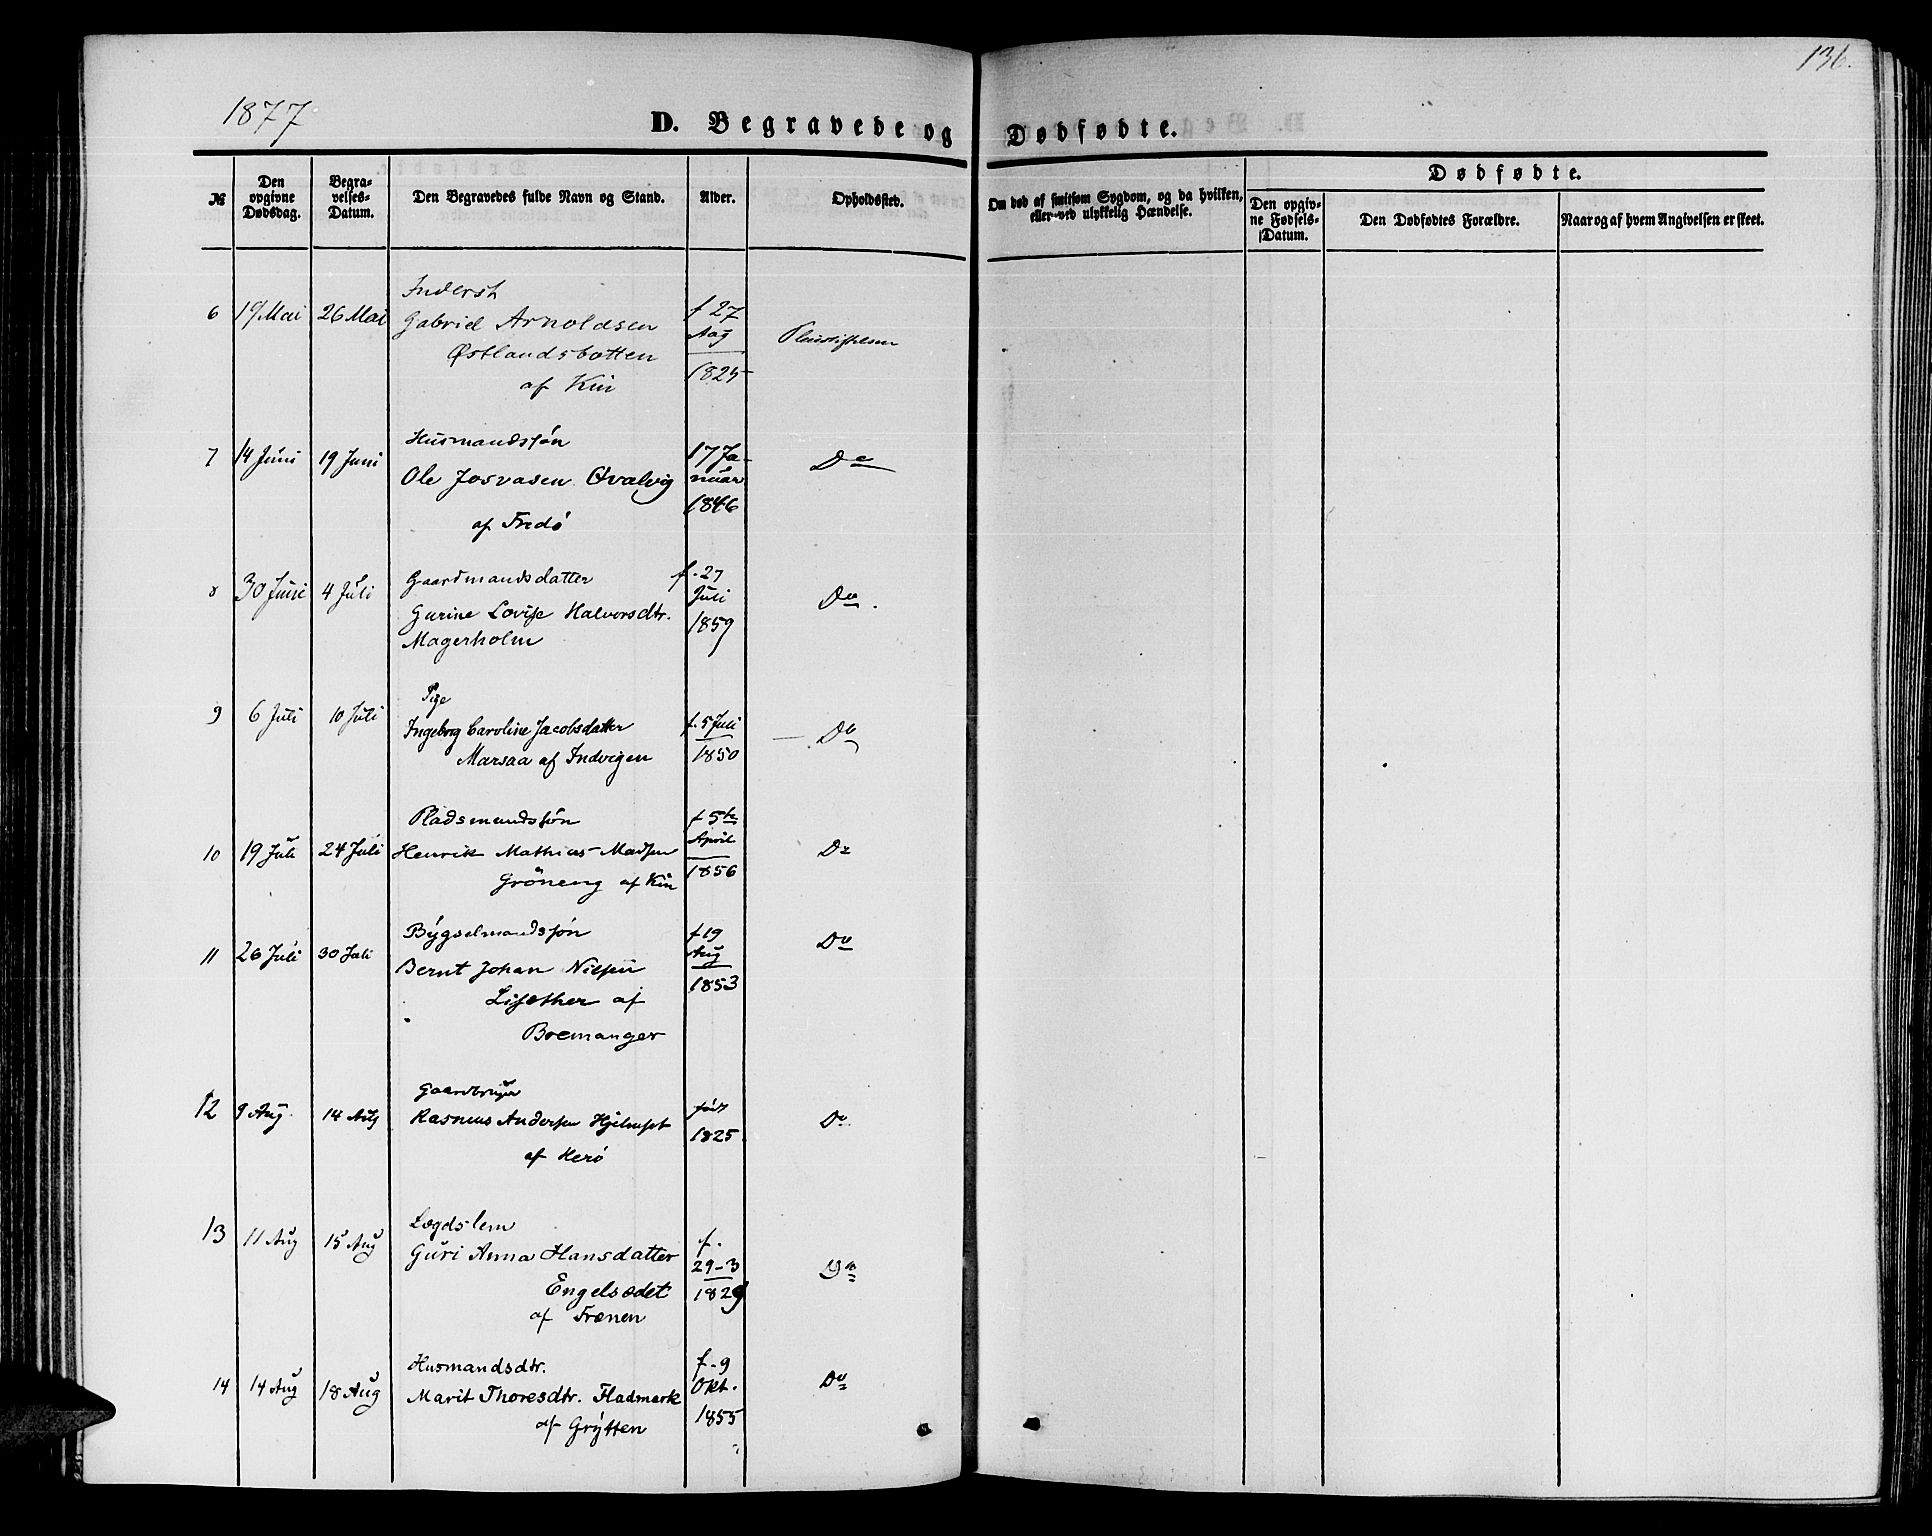 136.
1877
D. Begravede og Dødfødte.
№
Den opgivne Dødsdag.
Begravelses-Datum.
Den Begravedes fulde Navn og Stand.
Alder.
Opholdssted.
Om død af smitsom Sygdom, og da hvilken, eller ved ulykkelig Hændelse.
Dødfødte.
Den opgivne Fødsels-Datum.
Den Dødfødtes Forældre.
Naar og af hvem Angivelsen er skeet.
6 19 Mai 26 Mai Inderst f 27
Gabriel Arnoldsen Aug Pleiestiftelsen
Østlandsbotten 1825
af Kin
7 14 Juni 19 Juni Husmandssøn 17 Ja-
Ole Josvasen Qvalvig nuar Do
af Fredø 1846
8 30 Juni 4 Juli Gaardmandsdatter f. 27
Gurine Lovise Halvorsdtr. Juli Do.
Magerholm 1859
9 6 Juli 10 Juli Pige
Ingeborg Caroline Jacobsdatter f. 5 Juli Do
Marsaa af Indvigen 1850
10 19 Juli 24 Juli Pladsmandssøn f 5te
Henrik Mathias Madsen April Do
Grøneng af Kin 1856
11 26 Juli 30 Juli Bygselmandssøn f 19
Bernt Johan Nilsen Aug Do
Lisæther af 1853
Bremanger
12 9 Aug. 14 Aug Gaardbruger
Rasmus Andersen født Do
af Herø 1825
13 11 Aug 15 Aug Lægdslem f.
Guri Anna Hansdatter 29-3 Do
Engelsædet 1829
af Frænen
14 14 Aug 18 Aug Husmandsdtr. f. 9
Marit Thoresdtr. Fladmark Okt. Do
af Grytten 1855